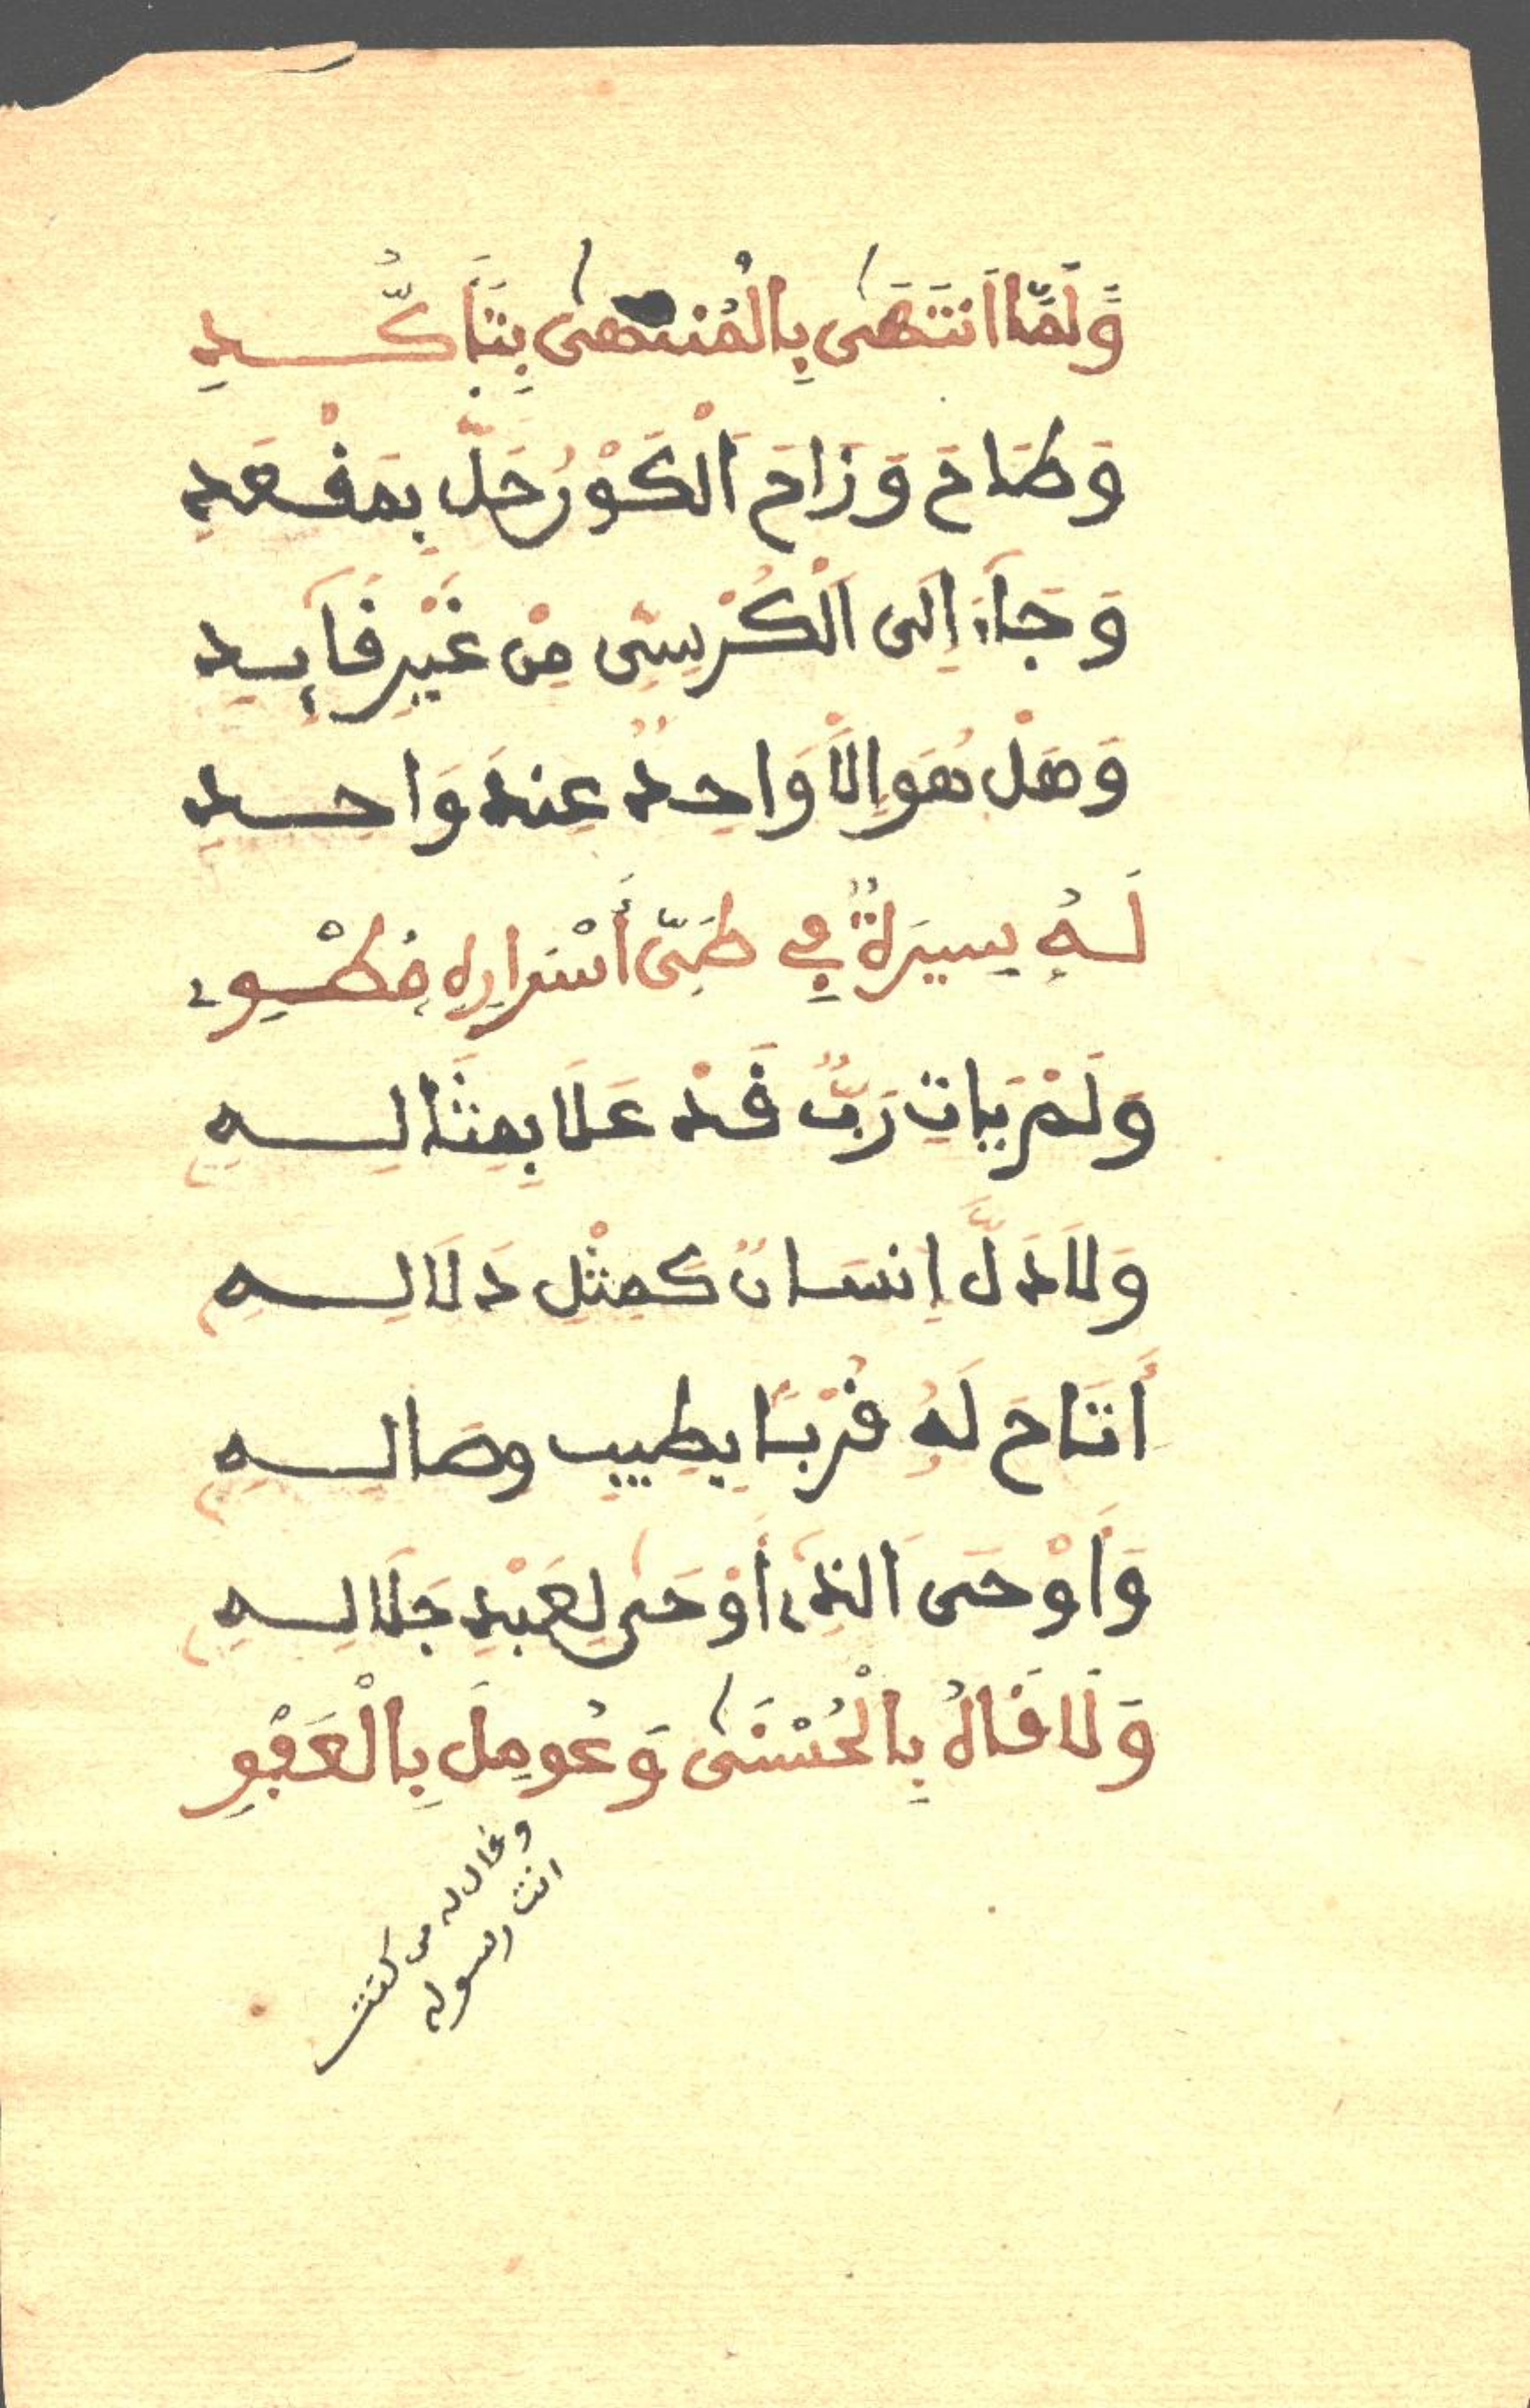 وَلَمَّا اَنتَهَىٰ بِالْمُنتَهَىٰ بِتَأَكُّدِ
وَطَاحَ وَزَاحَ اَلْكَوْرُ حَلَّ بِمَفْعَدِ
وَجَآءَ اِلَى اَلْكُرْسِيّ مِنْ غَيْرِ فَآئِدِ
وَهَلْ هُوَ اِلَّا وَاحِدٌ عِندَ وَاحِدِ
لَهُ سِيرَةٌ فِي طَيِّ أَسْرَارِهِ مُطْوِ
وَلَمْ يَاتِ رَبٌّ فَدْ عَلَا بِمِثَالِهِ
وَلَا دَلَّ اِنسَانٌ كَمِثْلِ دَلَالِهِ
أَتَاحَ لَهُ فُرْبًا بِطِيبِ وِصَالِهِ
وَأَوْحَى اَلذِي أَوْحَىٰ لِعَبْدِ جَلَالِهِ
وَلَافَاهُ بِالْحُسْنَىٰ وَعُومِلَ بِالْعَفْوِ
وفال له من كنت
انت رسوله